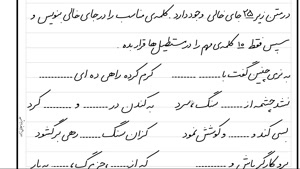 در متن زیر ۲۵ جای خالی وجود دارد. کلمه‌ی مناسب را در جای خالی بنویس و
سپس فقط ۱۰ کلمه‌ی مهم را در مستطیل‌ها قرار بده.
به نرمی چنین گفت با ........ ........ کرم کرده راهی ده ای ........
نشد چشمه از ........ سنگ، سرد به کندن در ........ و ........ کرد
بسی کند و ........ و کوشش نمود کزان سنگ ........ رهی بر گشود
برو کارگر باش و ........ که از ........ جز مرگ، ........ به بار